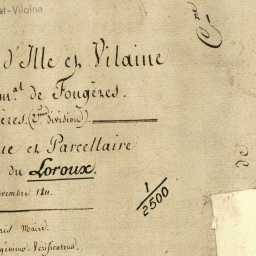 et-Vilaine
d'Ille et Vilaine
C.ne
m.al de Fougères.
ères. (2me Division)
ue et Parcellaire
de
du Loroux.
1/2500
vembre 181
Maire.
Vérificateur.